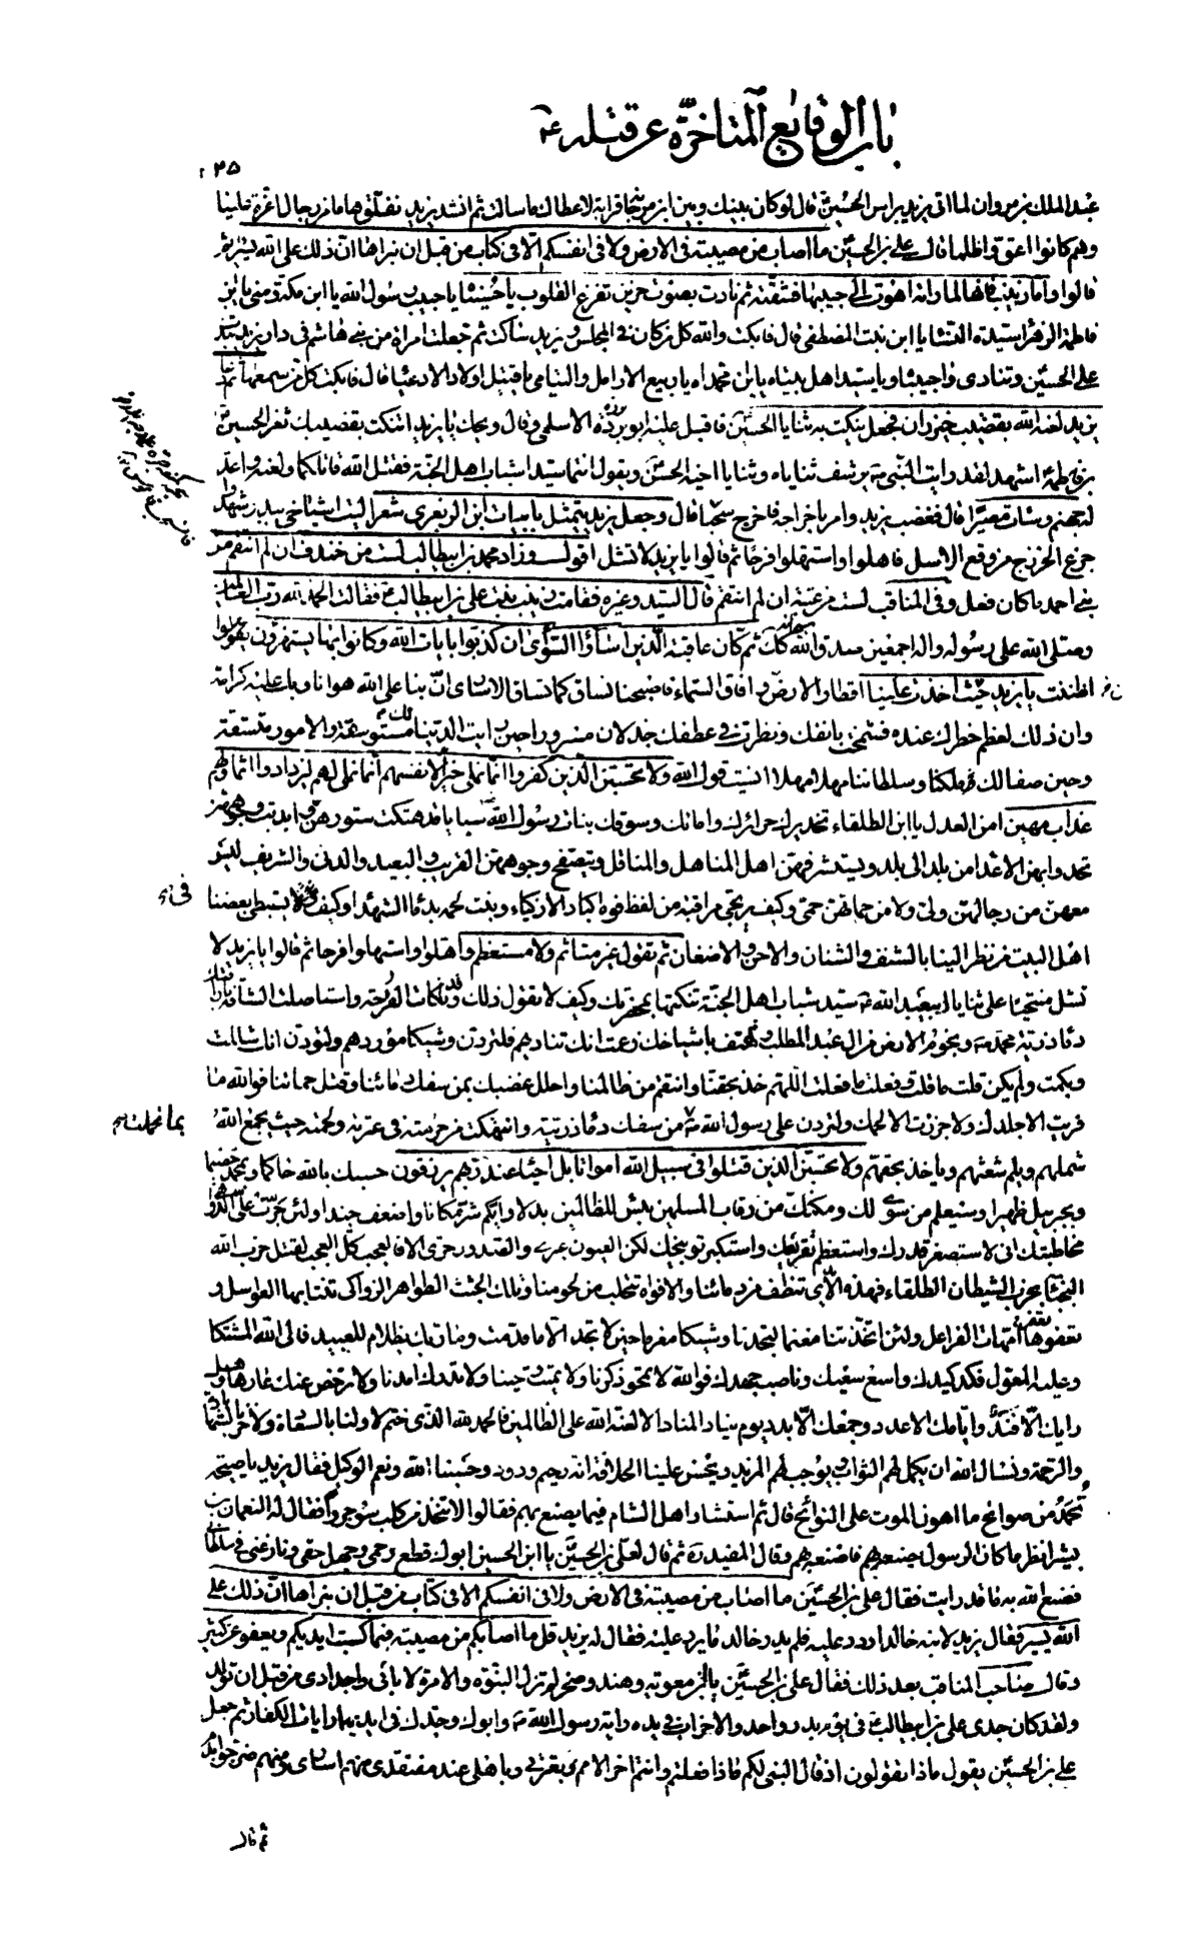 باب الوقايع المتاخرة عن قتله ع
٢٣٥
عبد الملك بن مروان لما اتى يزيد براس الحسين ع قال لو كان بينك وبين ابن مرجانة قرابة لاعطاك ما سالت ثم انشد يزيد نفلق هاما من رجال اعزة علينا
وهم كانوا اعق واظلما قال علي بن الحسين ما اصاب من مصيبة في الارض ولا في انفسكم الا في كتاب من قبل ان نبراها ان ذلك على الله يسير ثم
قالوا واما زينب فانها لما راته اهوت الى جيبها فشقته ثم نادت بصوت حزين تفزع القلوب يا حسيناه يا حبيب رسول الله يا ابن مكة ومنى يا بن
فاطمة الزهراء سيدة النساء يا ابن بنت المصطفى قال فابكت والله كل من كان في المجلس ويزيد ساكت ثم جعلت امراة من بني هاشم في دار يزيد تندب
على الحسين وتنادي واحبيباه ويا سيد اهل بيتاه يا بن محمداه يا ربيع الارامل واليتامى يا قتيل اولاد الادعياء قال فابكت كل من سمعها ثم دعا
يزيد لعنه الله بقضيب خيزران فجعل ينكت به ثنايا الحسين فاقبل عليه ابو برزة الاسلمي وقال ويحك يا يزيد اتنكت بقضيبك ثغر الحسين
بن فاطمة اشهد لقد رايت النبي ص يرشف ثناياه وثنايا اخيه الحسن ويقول انتما سيدا شباب اهل الجنة فقتل الله قاتلكما ولعنه واعد
له جهنم وساءت مصيرا قال فغضب يزيد وامر باخراجه فاخرج سحبا قال وجعل يزيد يتمثل بابيات ابن الزبعرى شعر ليت اشياخي ببدر شهدوا
جزع الخزرج من وقع الاسل فاهلوا واستهلوا فرحا ثم قالوا يا يزيد لا تشل اقول وزاد محمد بن ابيطالب لست من خندف ان لم انتقم من
بني احمد ما كان فعل وفي المناقب لست من عتبة ان لم انتقم قال السيد وغيره فقامت زينب بنت علي بن ابيطالب ع فقالت الحمد لله رب العالمين
وصلى الله على رسوله واله اجمعين صدق الله كذلك ثم كان عاقبة الذين اساؤا السؤى ان كذبوا بايات الله وكانوا بها يستهزؤن
اظننت يا يزيد حيث اخذت علينا اقطار الارض وافاق السماء فاصبحنا نساق كما تساق الاسارى ان بنا على الله هوانا وبك عليه كرامة
وان ذلك لعظم خطرك عنده فشمخت بانفك ونظرت في عطفك جذلان مسرورا حين رايت الدنيا لك مستوسقة والامور متسقة
وحين صفا لك ملكنا وسلطاننا مهلا مهلا انسيت قول الله ولا تحسبن الذين كفروا انما نملي لهم خير لانفسهم انما نملي لهم ليزدادوا اثما ولهم
عذاب مهين امن العدل يا ابن الطلقاء تخديرك حرائرك وامائك وسوقك بنات رسول الله ص سبايا قد هتكت ستورهن وابديت وجوههن
تحدوا بهن الاعداء من بلد الى بلد ويستشرفهن اهل المناهل والمناقل ويتصفح وجوههن القريب والبعيد والدني والشريف ليس
معهن من رجالهن ولي ولا من حماتهن حمي وكيف يرتجى مراقبة من لفظ فوه اكباد الازكياء ونبت لحمه بدماء الشهداء وكيف لا يستبطئ بغضنا
اهل البيت من نظر الينا بالشنف والشنان والاحن والاضغان ثم تقول غير متاثم ولا مستعظم واهلوا واستهلوا فرحا ثم قالوا يا يزيد لا
تشل منتحيا على ثنايا ابيعبد الله ع سيد شباب اهل الجنة تنكتها بمخصرتك وكيف لا تقول ذلك وقد نكات القرحة واستاصلت الشافة باراقتك
دماء ذرية محمد ص ونجوم الارض من ال عبد المطلب وتهتف باشياخك زعمت انك تناديهم فلتردن وشيكا موردهم ولتودن انك شللت
وبكمت ولم يكن قلت ما قلت وفعلت ما فعلت اللهم خذ بحقنا وانتقم من ظالمنا واحلل غضبك بمن سفك دمائنا وقتل حماتنا فوالله ما
فريت الا جلدك ولا جززت الا لحمك ولتردن على رسول الله ص بما تحملت من سفك دماء ذريته وانتهكت من حرمته في عترته ولحمته حيث يجمع الله
شملهم ويلم شعثهم وياخذ بحقهم ولا تحسبن الذين قتلوا في سبيل الله امواتا بل احياء عند ربهم يرزقون حسبك بالله حاكما وبمحمد خصيما
وبجبريل ظهيرا وسيعلم من سوى لك ومكنك من رقاب المسلمين بئس للظالمين بدلا وايكم شر مكانا واضعف جندا ولئن جرت علي الدواهي
مخاطبتك اني لاستصغر قدرك واستعظم تقريعك واستكبر توبيخك لكن العيون عبرى والصدور حرى الا فالعجب كل العجب لقتل حزب الله
النجباء بحزب الشيطان الطلقاء فهذه الايدي تنطف من دمائنا والافواه تتحلب من لحومنا وتلك الجثث الطواهر الزواكي تنتابها العواسل و
تعفوها امهات الفراعل ولئن اتخذتنا مغنما لتجدنا وشيكا مغرما حين لا تجد الا ما قدمت وما ربك بظلام للعبيد فالى الله المشتكى
وعليه المعول فكد كيدك واسع سعيك وناصب جهدك فوالله لا تمحو ذكرنا ولا تميت وحينا ولا تدرك امدنا ولا ترحض عنك عارها وهل
رايك الا فند وايامك الا عدد وجمعك الا بدد يوم يناد المناد الا لعنة الله على الظالمين فالحمد لله الذي ختم لاولنا بالسعادة ولاخرنا بالشهادة
والرحمة ونسال الله ان يكمل لهم الثواب ويوجب لهم المزيد ويحسن علينا الخلافة انه رحيم ودود وحسبنا الله ونعم الوكيل فقال يزيد يا صيحة
تحمد من صوائح ما اهون الموت على النوائح قال ثم استشار اهل الشام فيما يصنع بهم فقالوا لا تتخذ من كلب سوء جروا فقال له النعمان بن
بشير انظر ما كان الرسول يصنعه بهم فاصنعه بهم وقال المفيد ره ثم قال لعلي بن الحسين يا ابن الحسين ابوك قطع رحمي وجهل حقي ونازعني في سلطاني
فصنع الله به ما قد رايت فقال علي بن الحسين ما اصاب من مصيبة في الارض ولا في انفسكم الا في كتاب من قبل ان نبراها ان ذلك على
الله يسير فقال يزيد لابنه خالد اردد عليه فلم يدر خالد ما يرد عليه فقال له يزيد قل ما اصابكم من مصيبة فبما كسبت ايديكم ويعفو عن كثير
وقال صاحب المناقب بعد ذلك فقال علي بن الحسين يا بن معوية وهند وصخر لم تزل النبوة والامرة لابائي واجدادي من قبل ان تولد
ولقد كان جدي علي بن ابيطالب ع في يوم بدر واحد والاحزاب في يده راية رسول الله ص وابوك وجدك في ايديهما رايات الكفار ثم جعل
علي بن الحسين يقول ماذا تقولون اذ قال النبي لكم ماذا فعلتم وانتم اخر الامم بعترتي وباهلي عند مفتقدي منهم اسارى ومنهم ضرجوا بدم
ثم قال